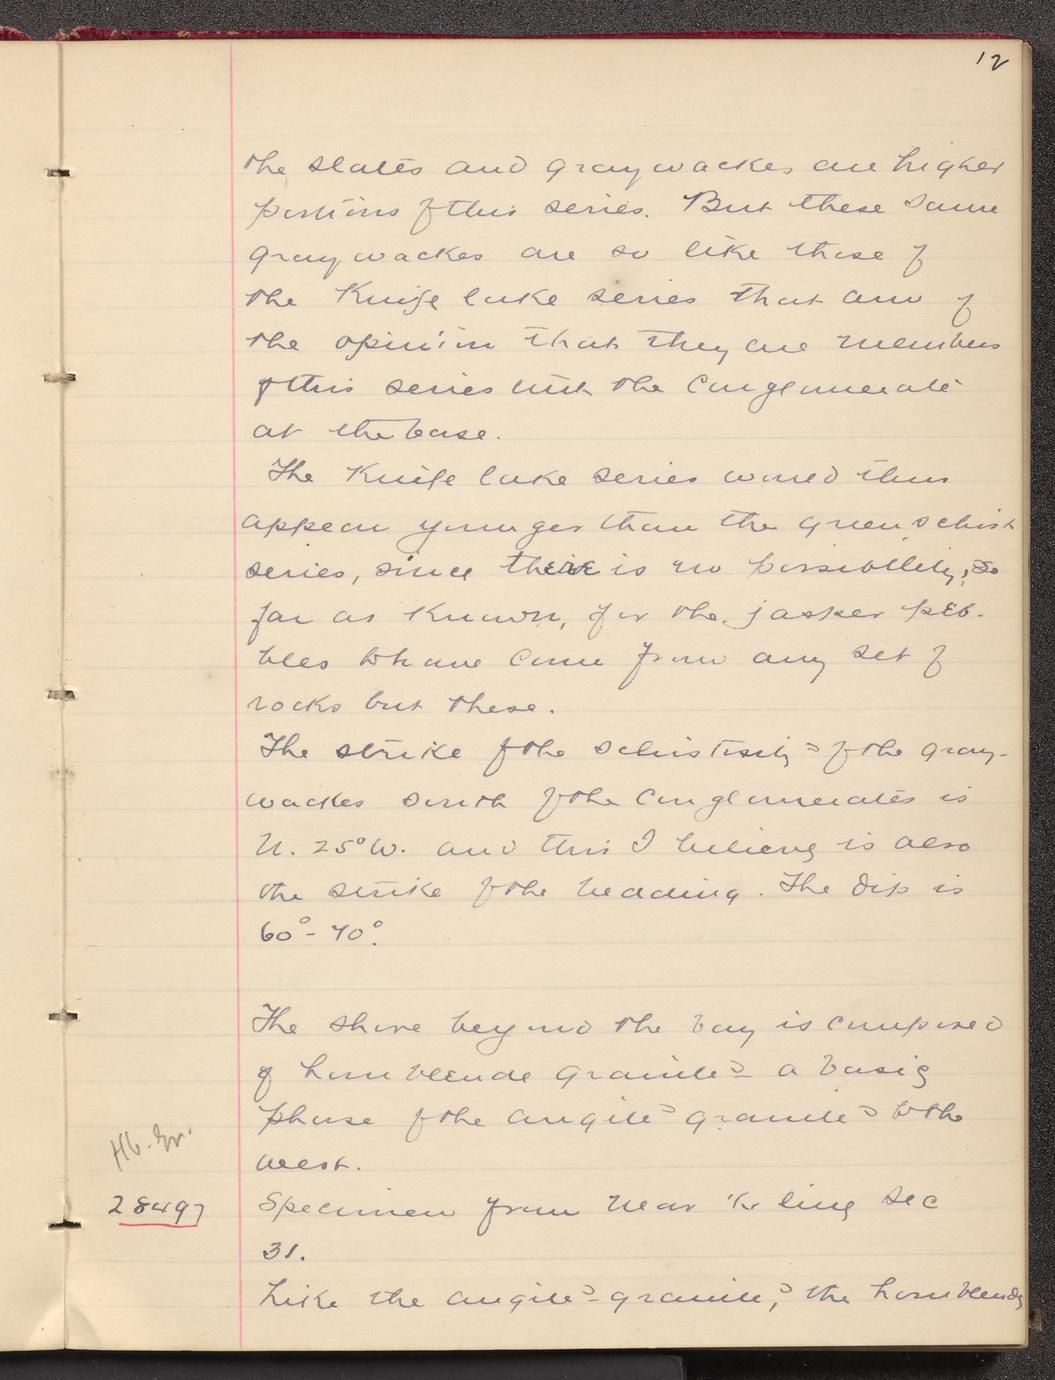 12
the slates and graywackes are higher
portions of this series. But these same
graywackes are so like those of
the Knife lake series that am of
the opinion that they are members
of this series with the Conglomerate
at the base.
The Knife lake series would thus
appear younger than the green schist
series, since there is no possibility, so
far as known, for the jasper peb-
bles to have come from any set of
rocks but these.
The strike of the schistosity of the gray-
wackes south of the Conglomerates is
N. 25° W. and this I believe is also
the strike of the bedding. The dip is
60°- 70°.
The shore beyond the bay is composed
of hornblende granite - a basic
phase of the augite granite to the
west.
Hb. Gr.
28497 Specimen from near line Sec
31.
Like the augite-granite, the hornblende